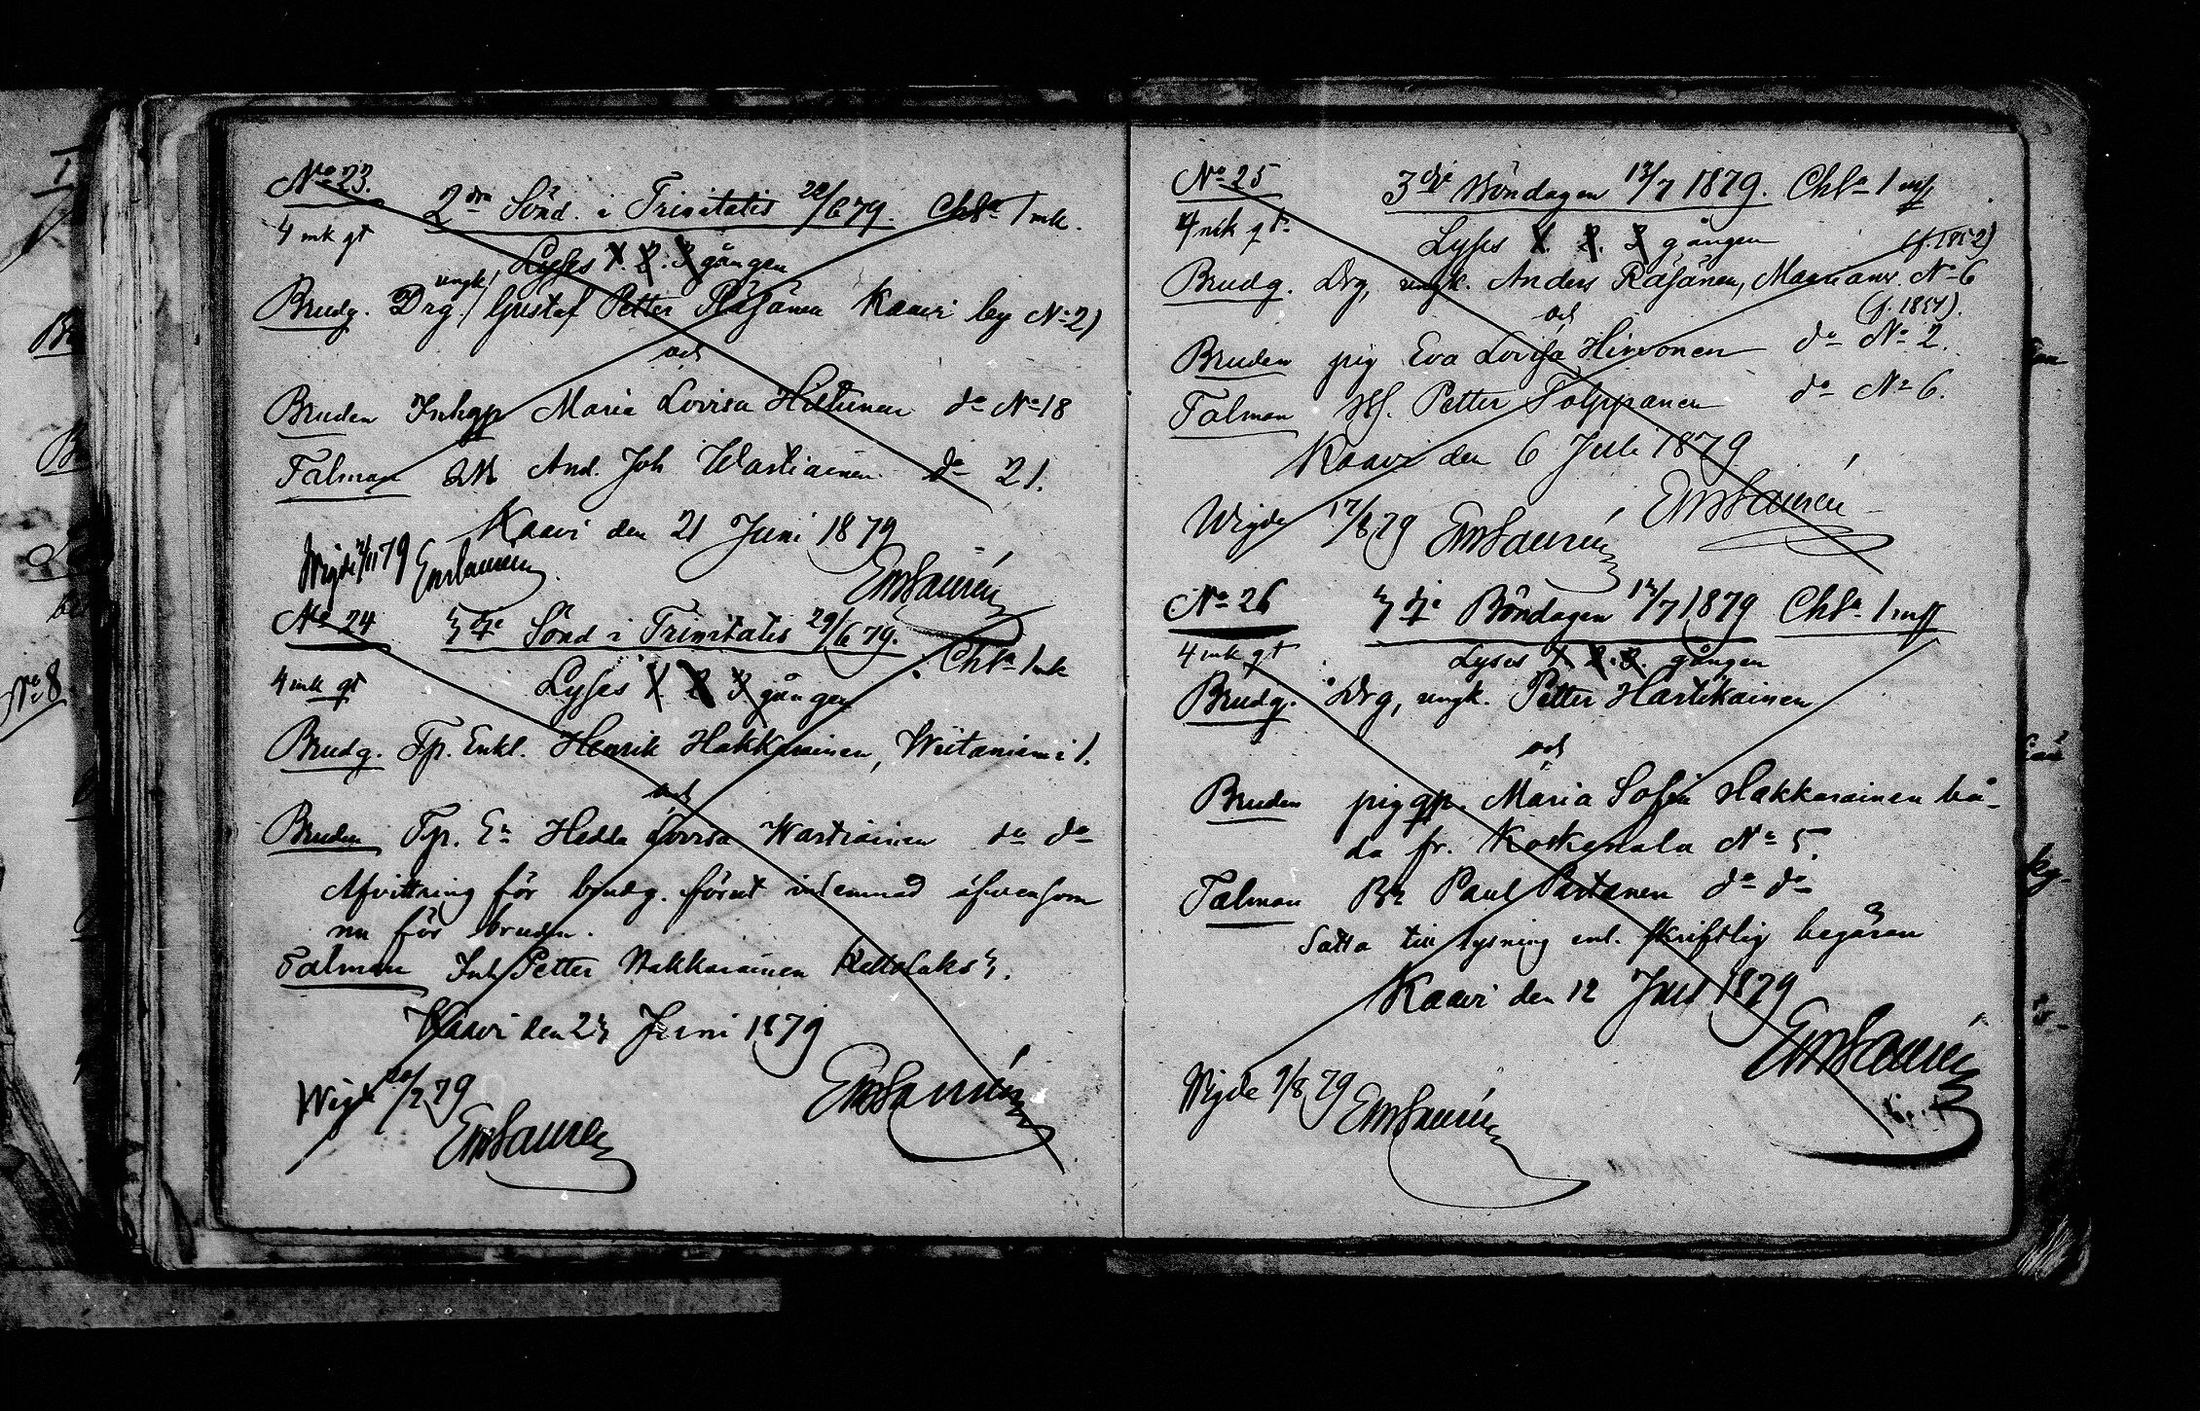 No 23.
2dra Sönd. i Trinitatis 22/6 79. Chla 1 mk.
4 mk gt
Lyses 1. 2. 3 gången
Brudg. Drg. ungk. Gustaf Petter Räsänen Kaavi by No 2)
och
Bruden Inhgp Maria Lovisa Hiltunen do No 18
Falman And. Joh Wartiainen do 21.
Kaavi den 21 Juni 1879
Wigde 79 EmSaurén
EmSaurén
No 24
3dje Sönd i Trinitatis 29/6 79.
Chla 1 mk
4 mk gt
Lyses 1 2 3 gången
Brudg. Tp. Enkl. Henrik Hakkarainen, Weitaniemi 1.
och
Bruden Tp. Ea Hedda Lovisa Wartiainen do do
Afvittring för brudg. förut inlemnad äfvensom
nu för bruden.
Talman Inh Petter Hakkarainen Kettolaks 3.
Kaavi den 23 Juni 1879
Wigde 79
EmSaurén
EmSaurén
No 25
3dje Böndagen 13/7 1879. Chla 1 mk
4 mk gt.
Lyses 1. 2. 3 gången
(f. 1852)
Brudg. Drg, ungk. Anders Räsänen, Maarianv. No 6
och
(f. 1851).
Bruden pig Eva Lovisa Hirvonen do No 2.
Talman Petter Tolppanen do No 6.
Kaavi den 6 Juli 1879
EmSaurén
Wigde 17/8 79 EmSaurén
No 26
3dje Böndagen 13/7 1879 Chla 1 mk
4 mk gt
Lyses 1. 2. 3. gången
Brudg. Drg, ungk. Petter Hartikainen
och
Bruden pig qp. Maria Sofia Hakkarainen bå-
da fr. Koskenala No 5.
Talman Br Paul Partanen do do
Satta till lysning enl. skriftlig begäran
Kaavi den 12 Juli 1879
EmSaurén
Wigde 9/8 79 EmSaurén
No 8